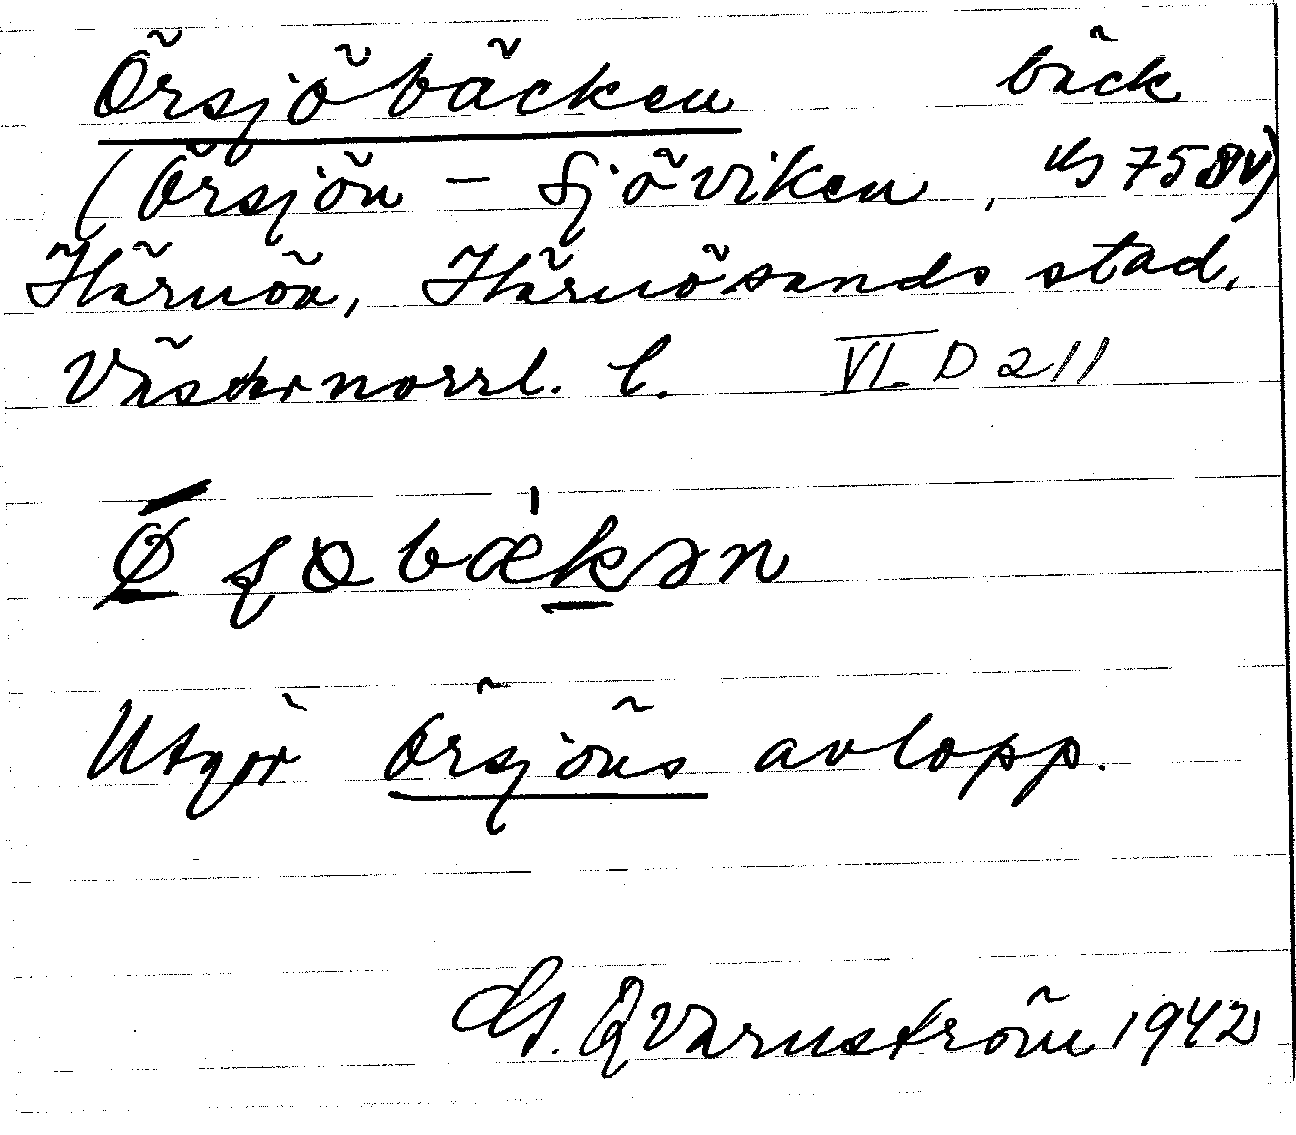 Örsjöbäcken bäck
(Örsjön - Sjöviken, Ks 75 SV)
Härnön, Härnösands stad,
Västernorrl. l. VI. D 211
Utgör Örsjöns avlopp.
G. Qvarnström 1942